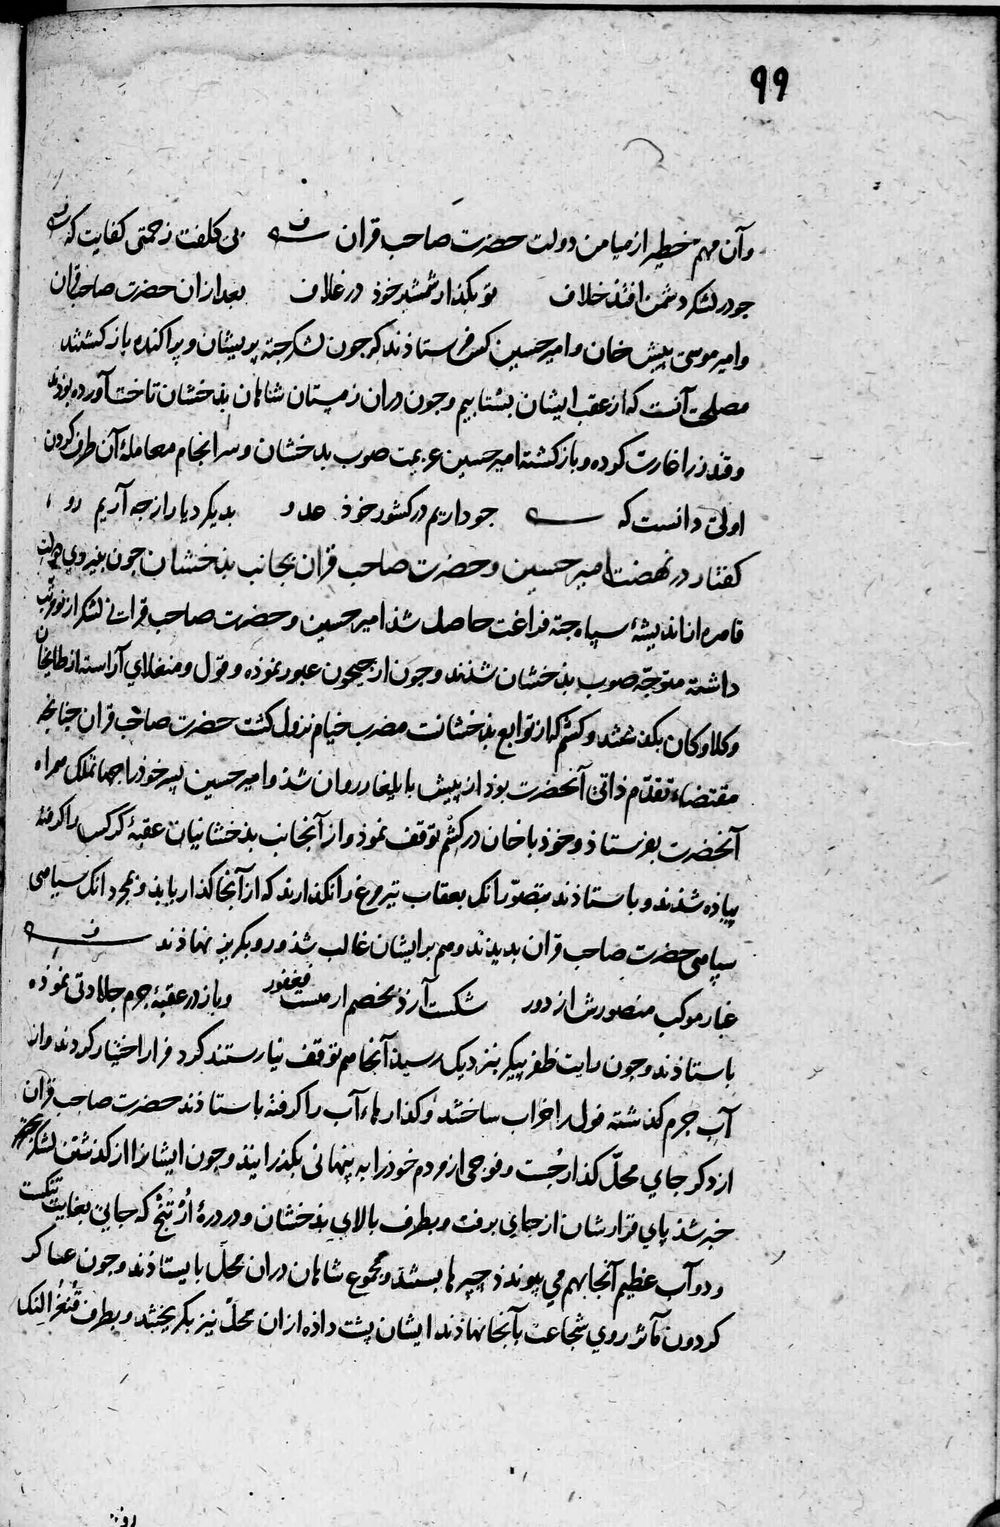 ۹۹
وآن مهم خطیر از میامن دولت حضرت صاحب قران بی کلفت زحمتی کفایت کشت
جو در لشکر دشمن افتد خلاف تو بکذار شمشیر خود در غلاف بعد از ان حضرت صاحب قران
وامیر موسی پیش خان وامیر حسین کس فرستاذند که جون لشکر جته پریشان وپراکنده بازکشتند
مصلحت آنست که از عقب ایشان بشتابیم وجون دران زمستان شاهان بذخشان تاخت آورده بوذند
وقندز را غارت کرده وبازکشته امیر حسین عزیمت صوب بدخشان وسرانجام معاملهٔ آن طرف کردن
اولی دانست که جو داریم در کشور خوذ عدو بدیکر دیار از جه آریم رو
کفتار در نهضت امیر حسین وحضرت صاحب قران بجانب بذخشان جون بنیروی دولت
قاهره از اندیشهٔ سپاه جته فراغت حاصل شذ امیر حسین وحضرت صاحب قرانی لشکر از نو مرتب
داشته متوجّه صوب بذخشان شذند وجون از جیحون عبور نموذه وقول ومنغلای آراسته از طایخان
وکلاوکان بکذشتند وکشم که از توابع بذخشانست مضرب خیام نزول کشت حضرت صاحب قران جنانجه
مقتضاء تقدّم ذاتی آنحضرت بوذ از پیش بایلغار روان شذ وامیر حسین پسر خوذ را جهانملک همراه
آنحضرت بفرستاذ وخوذ با خان در کشم توقف نموذ واز آنجانب بذخشانیان عقبهٔ کرکس را کرفته
پیاذه شذند وباستاذند بتصوّر آنک بعقاب تیز وغ را نکذارند که از آنجا کذار یابذ وبمجرد آنک سیاهی
سپاهی حضرت صاحب قران بدیدند وهم بر ایشان غالب شذ ورو بکریز نهاذند
غبار موکب منصورش از دور شکست آرذ بخصم ار هست فغفور وباز در عقبهٔ جرم جلادتی نموذه
باستاذند وجون رایت ظفر پیکر بنزدیک رسیذ آنجا هم توقف نیارستند کرد فرار اختیار کردند واز
آب جرم کذشته فول را خراب ساختند وکذارهاء آب را کرفته باستاذند حضرت صاحب قران
از دکر جای محلّ کذار جُست وفوجی از مردم خوذ را به پنهانی بکذرانیذ وجون ایشانرا از کذشتن لشکر
خبر شذ پای قرارشان از جای برفت وبطرف بالای بذخشان ودر درهٔ اُرتنج که جایی بغایت تنکست
ودو آب عظیم آنجا بهم می پیوندذ جپرها بستند ومجموع شاهان دران محلّ بایستاذند وجون عساکر
کردون مآثر روی شجاعت بآنجا نهاذند ایشان پشت داذه از ان محلّ نیز بکریختند وبطرف قُنغُرالنک